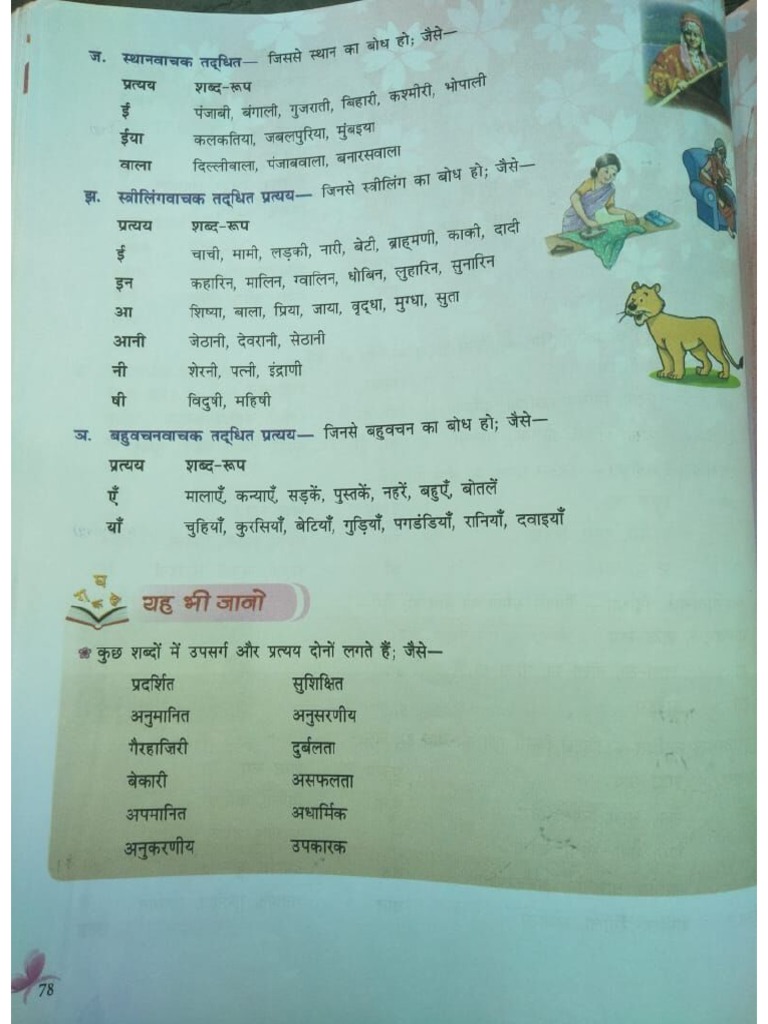 ज. स्थानवाचक तद्‌धित— जिससे स्थान का बोध हो; जैसे—
प्रत्यय शब्द-रूप
ई पंजाबी, बंगाली, गुजराती, बिहारी, कश्मीरी, भोपाली
ईया कलकतिया, जबलपुरिया, मुंबइया
वाला दिल्लीवाला, पंजाबवाला, बनारसवाला
झ. स्त्रीलिंगवाचक तद्‌धित प्रत्यय— जिनसे स्त्रीलिंग का बोध हो; जैसे—
प्रत्यय शब्द-रूप
ई चाची, मामी, लड़की, नारी, बेटी, ब्राह्मणी, काकी, दादी
इन कहारिन, मालिन, ग्वालिन, धोबिन, लुहारिन, सुनारिन
आ शिष्या, बाला, प्रिया, जाया, वृद्‌धा, मुग्धा, सुता
आनी जेठानी, देवरानी, सेठानी
नी शेरनी, पत्नी, इंद्राणी
षी विदुषी, महिषी
ञ. बहुवचनवाचक तद्‌धित प्रत्यय— जिनसे बहुवचन का बोध हो; जैसे—
प्रत्यय शब्द-रूप
एँ मालाएँ, कन्याएँ, सड़कें, पुस्तकें, नहरें, बहुएँ, बोतलें
याँ चुहियाँ, कुरसियाँ, बेटियाँ, गुड़ियाँ, पगडंडियाँ, रानियाँ, दवाइयाँ
यह भी जानो
कुछ शब्दों में उपसर्ग और प्रत्यय दोनों लगते हैं; जैसे—
प्रदर्शित सुशिक्षित
अनुमानित अनुसरणीय
गैरहाजिरी दुर्बलता
बेकारी असफलता
अपमानित अधार्मिक
अनुकरणीय उपकारक
78